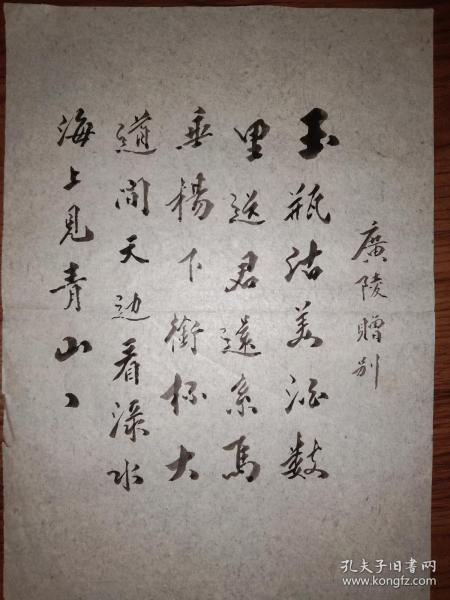 廣陵赠别
玉瓶沽美酒数
里送君還系馬
垂楊下銜杯大
道间天边看渌水
海上見青山
孔夫子旧书网
www.kongfz.com